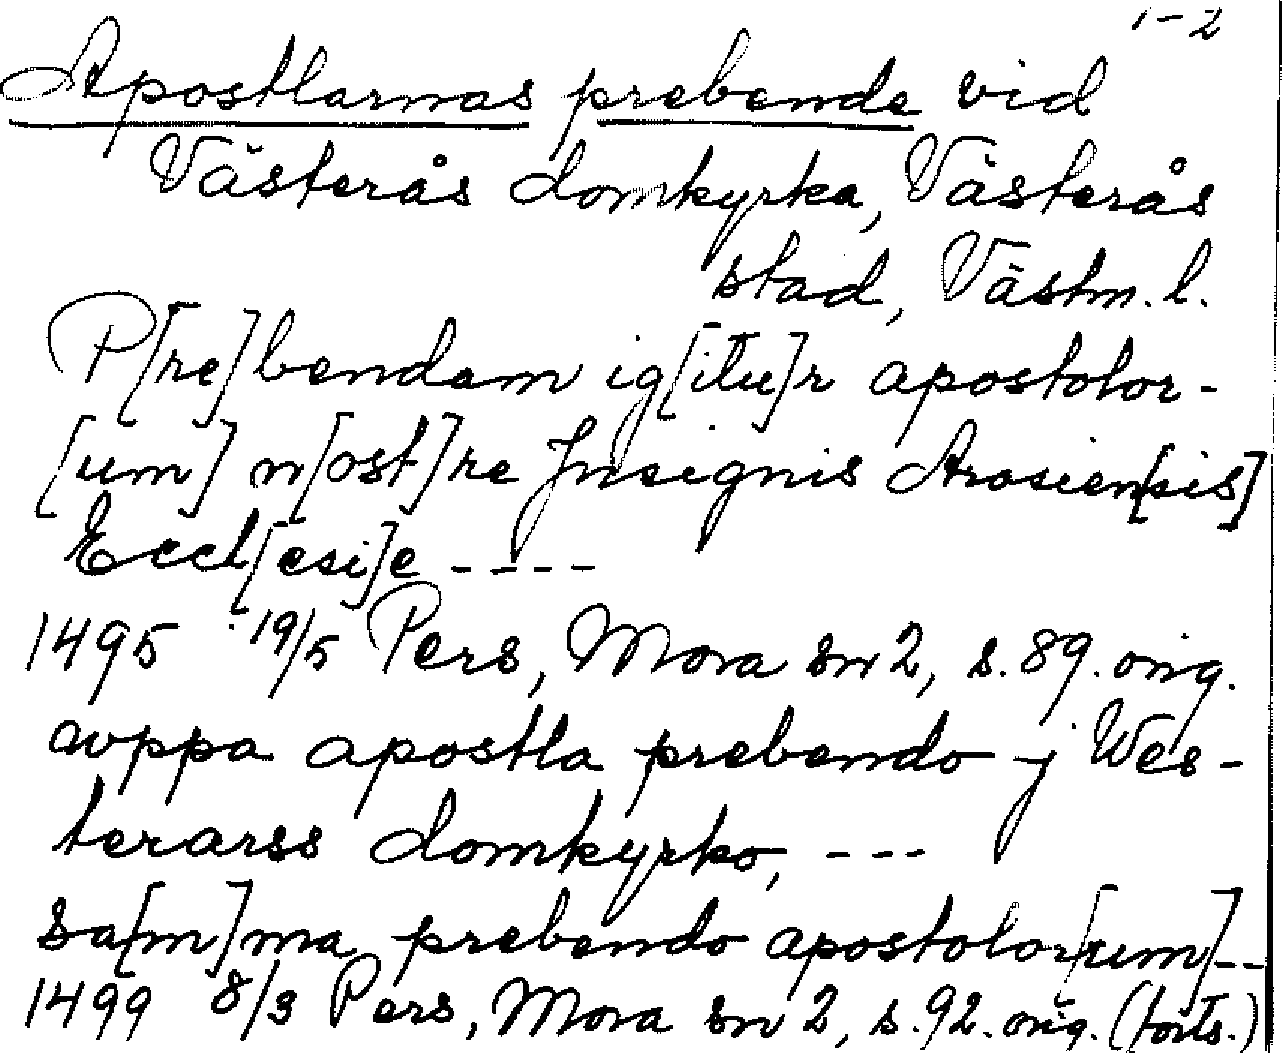 1-2
Apostlarnas prebende vid
Västerås domkyrka, Västerås
stad, Västm. l.
P[re]bendam ig[itu]r apostolor-
[um] n[ost]re Jnsignis Arosien[sis]
Eccl[esi]e ----
1495 19/5 Pers, Mora sn 2, s. 89. orig.
avppa apostla prebendo j Wes-
terarss domkyrko, ---
sa[m]ma prebendo apostolor[um]--
1499 8/3 Pers, Mora sn 2, s. 92. orig. (forts.)